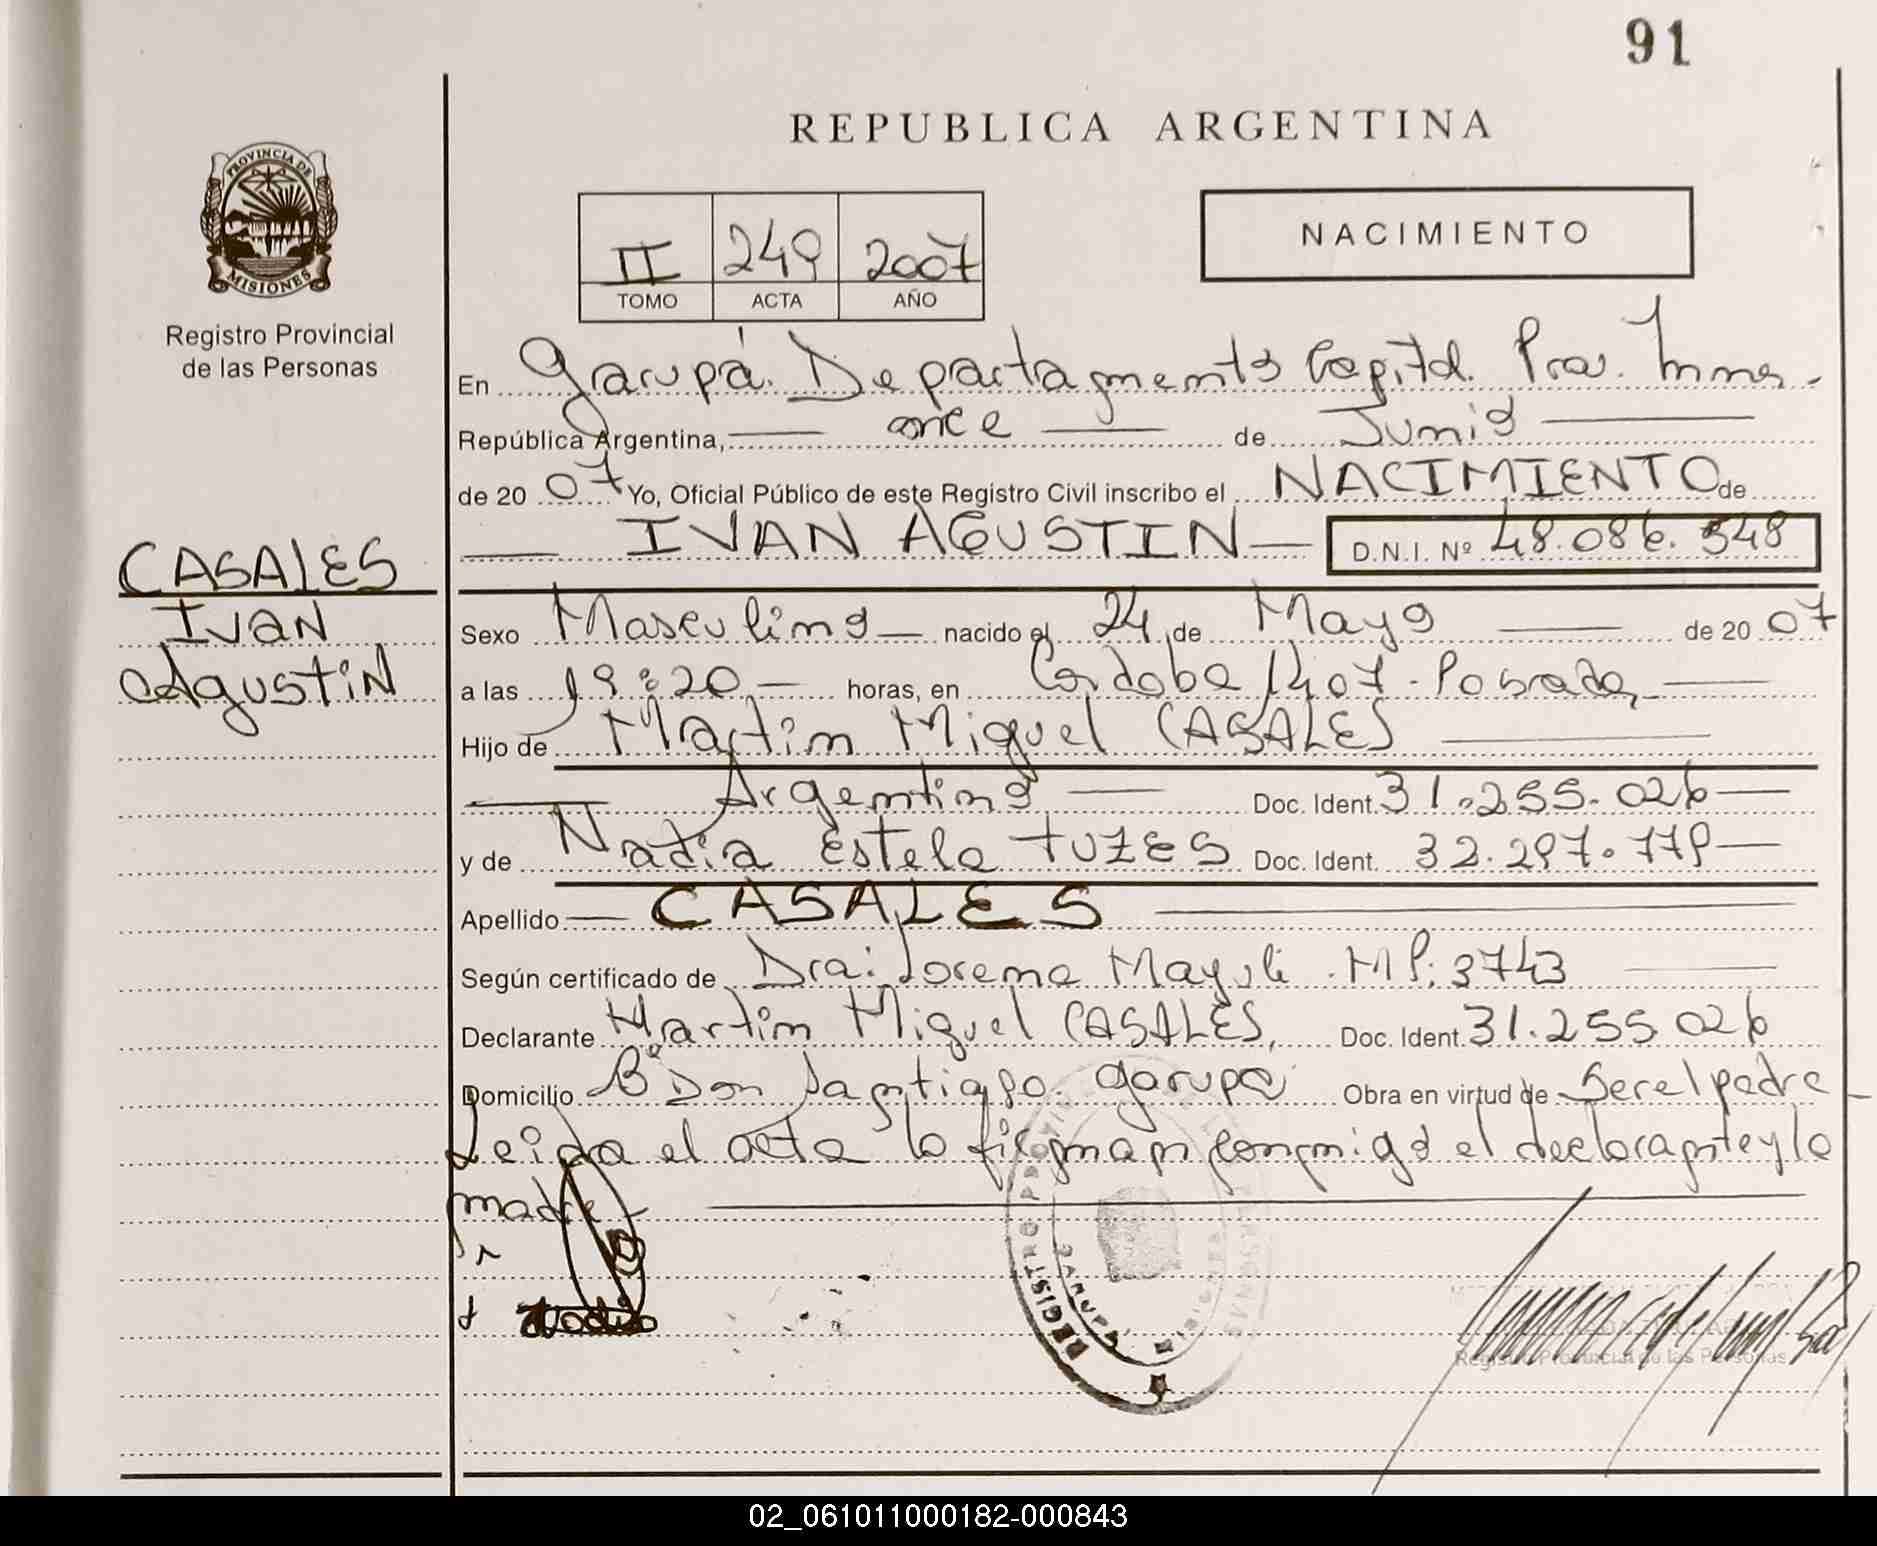 91
REPUBLICA ARGENTINA
PROVINCIA DE
MISIONES
Registro Provincial
de las Personas
II 249 2007
TOMO ACTA AÑO
NACIMIENTO
En Garupá. Departamento Capital. Prov. Mnes.
República Argentina, once de Junio
de 20 07 Yo, Oficial Público de este Registro Civil inscribo el NACIMIENTO de
IVAN AGUSTIN D.N.I. Nº 48.086.348
CASALES
IVAN
AgustiN
Sexo Masculino nacido el 24 de Mayo de 20 07
a las 19:20 horas, en Cordoba 1407 - Posadas
Hijo de Martin Miguel CASALES
Argentino Doc. Ident. 31.255.026
y de Nadia Estela TUZES Doc. Ident. 32.297.779
Apellido CASALES
Según certificado de Dra: Lorena MP: 3743
Declarante Martin Miguel CASALES, Doc. Ident. 31.255.026
Domicilio Bº Don Santiago. Garupa Obra en virtud de Ser el padre
Leida el acta la firman conmigo el declarante y la
madre
REGISTRO PROVINCIAL DE LAS PERSONAS
GARUPA MISIONES
Registro Provincial de las Personas
02_061011000182-000843